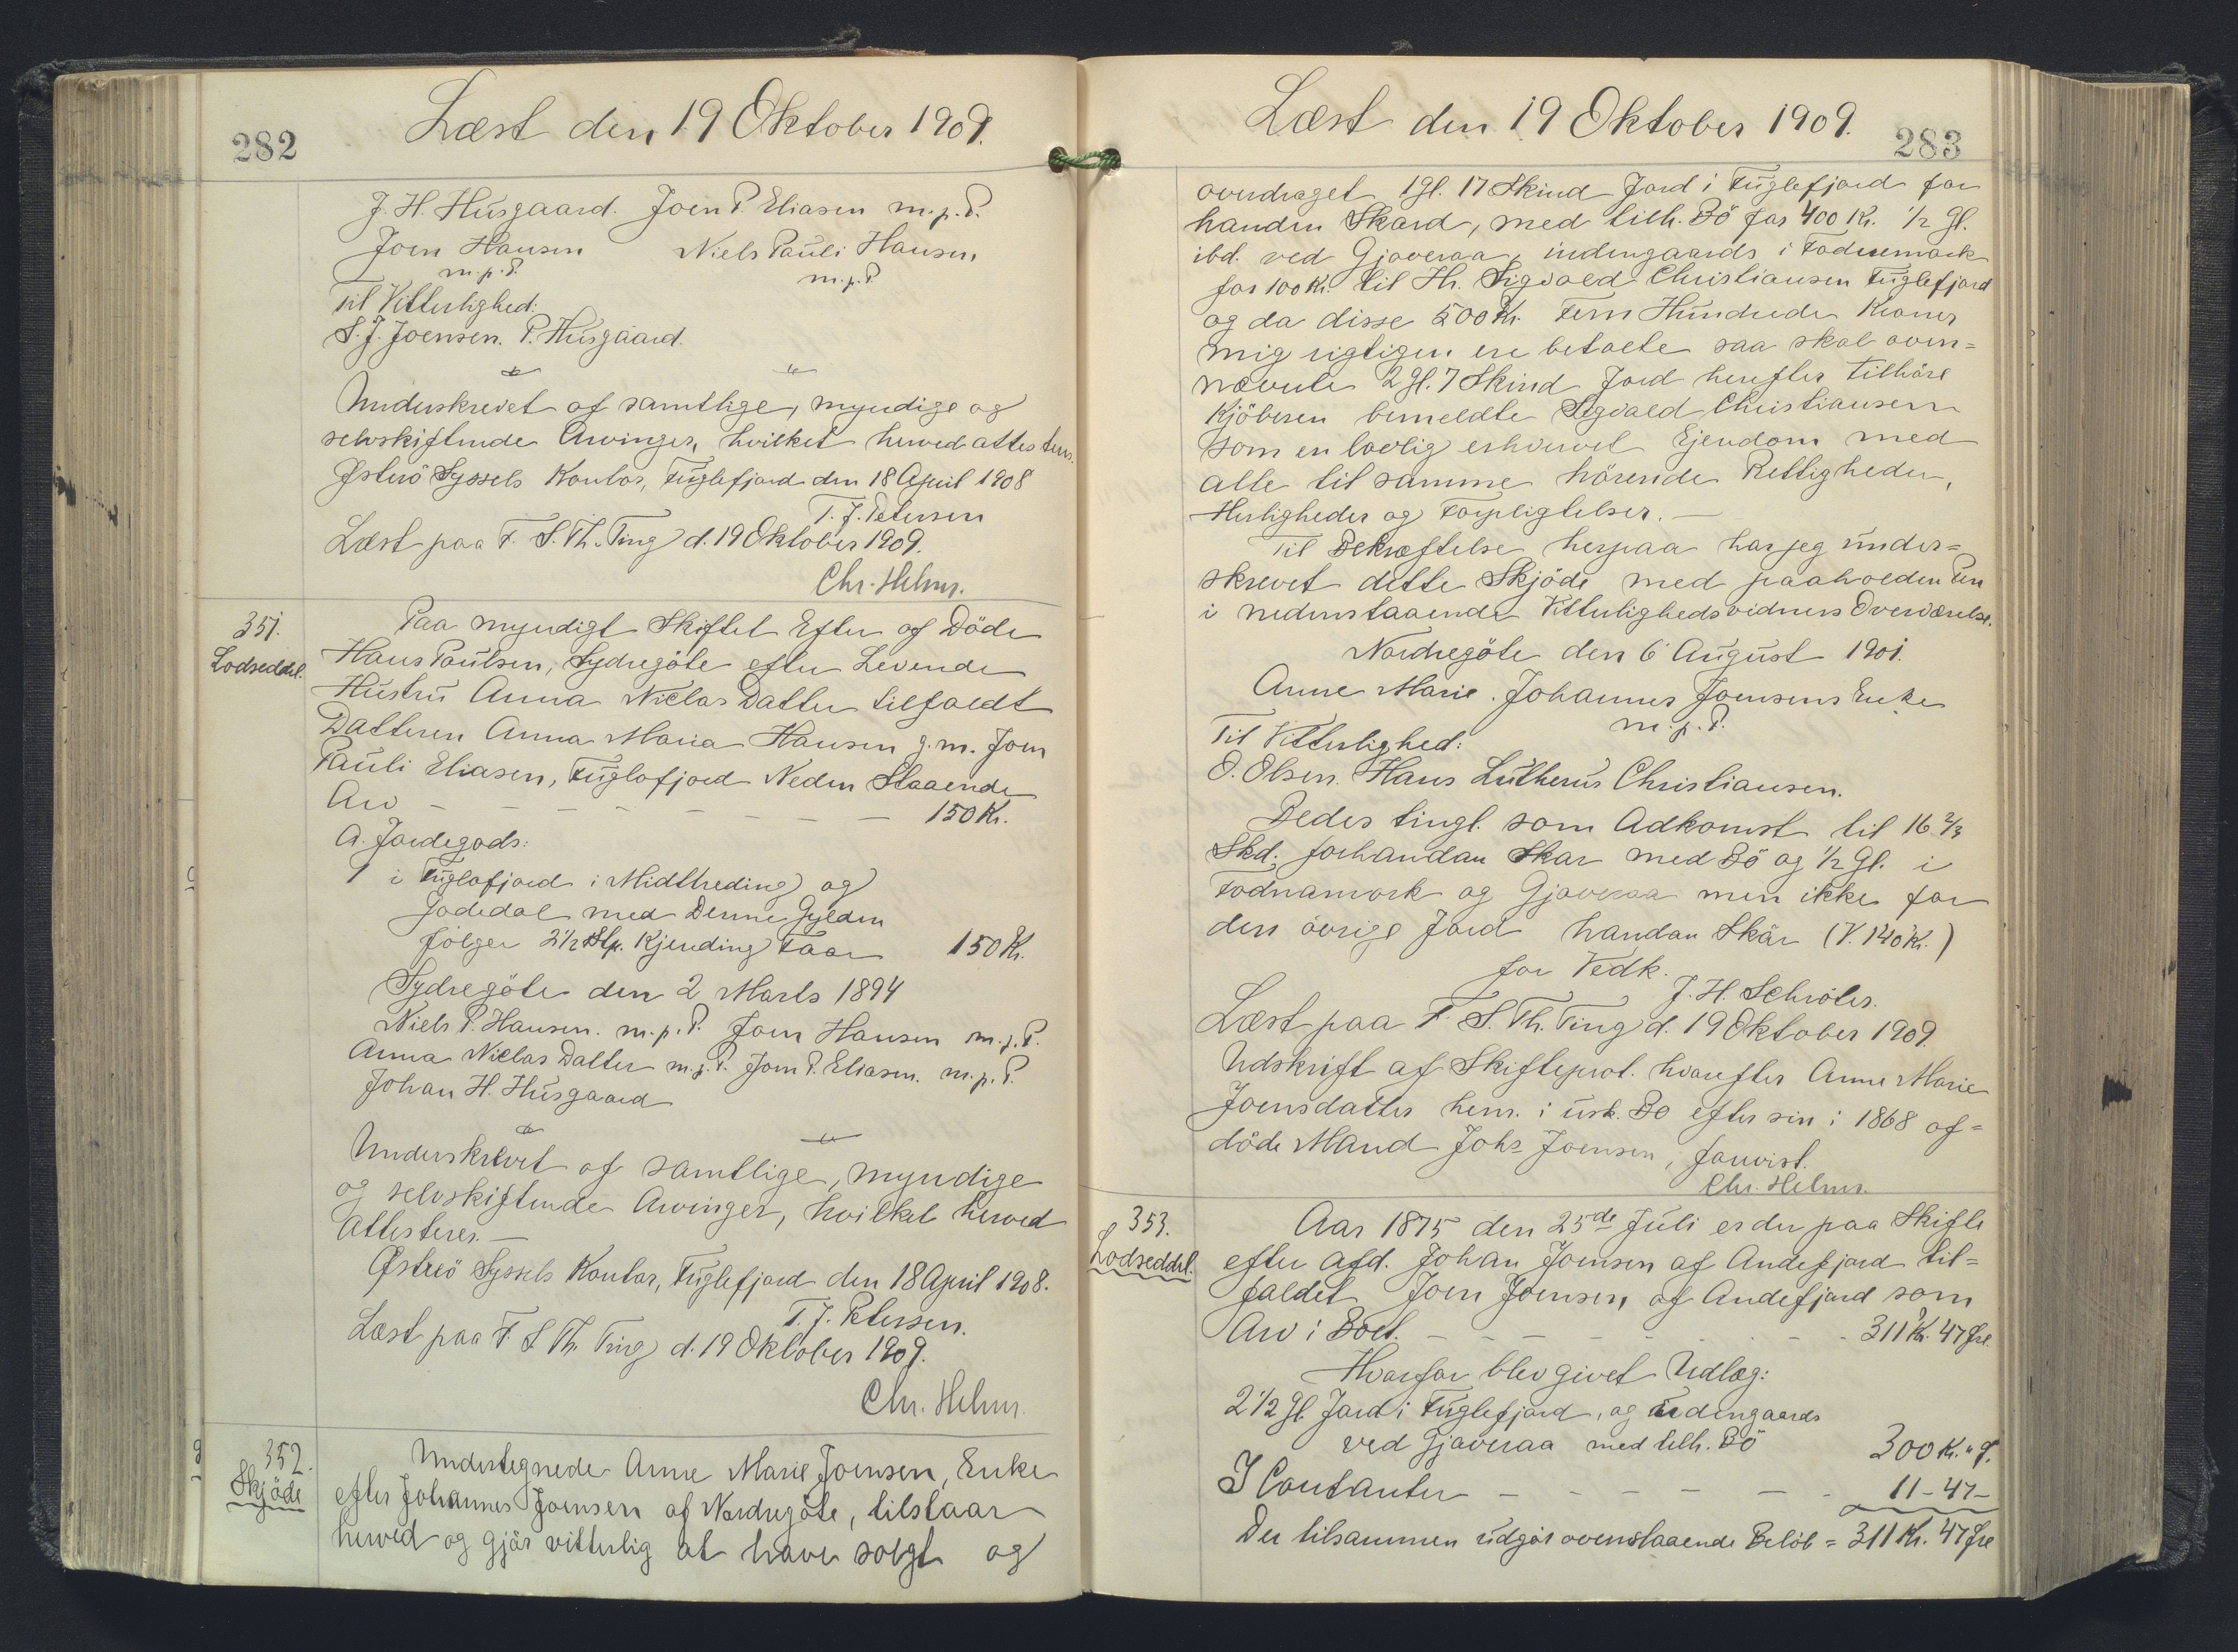 282
Læst den 19 Oktober 1909.
J. H. Húsgaard. Joen P. Eliasen m.p.P.
Joen Hansen Niels Paúli Hansen
m.p.P. m.p.P
Til Vitterlighed:
S. J. Joensen. P. Húsgaard.
Underskrevet af samtlige, myndige og
selvskiftende Arvinger, hvilket herved attesteres.
Østerö Syssels Kontor, Fúglefjord den 18 April 1908
T. J. Petersen
Læst paa F. S. Th. Ting d. 19 Oktober 1909.
Chr. Helms.
351.
Lodseddel.
Paa myndigt Skiftet Efter af Döde
Hans Paúlsen, Sydregöte efter Levende
Hústrú Anna Niclas Datter tilfaldt
Datteren Anna Maria Hansen g. m. Joen
Paúli Eliasen, Fúglafjord Neden Staaende
Arv - - - - - - - 150 Kr.
A. Jordegods:
1 i Fúglafjord i Midthreding og
Jadedal med Denne Gylden
fölger 2 1/2 Stk. Kjending Faar 150 Kr.
Sydregöte den 2 Marts 1894
Niels P. Hansen. m.p.P. Joen Hansen m.p.P.
Anna Niclas Datter m.p.P. Joen P. Eliasen. m.p.P.
Johan H. Húsgaard
Underskrevet af samtlige, myndige
og selvskiftende Arvinger, hvilket herved
attesteres. —
Østerö Syssels Kontor, Fúglefjord den 18 April 1908.
T. J. Petersen.
Læst paa F. S. Th. Ting d. 19 Oktober 1909.
Chr. Helms.
352.
Skjöde
Undertegnede Anne Marie Joensen, Enke
efter Johannes Joensen af Nordregöte, tilstaar
herved og gjör vitterlig at have solgt og
Læst den 19 Oktober 1909.
283
overdraget 1 gl. 17 Skind Jord i Fúglefjord for
handen Skard, med tilh. Bö for 400 Kr. 1/2 gl.
ibd. ved Gjaveraa, indengaards i Fodnemark
for 100 Kr. til Hr. Sigvald Christiansen Fúglefjord
og da disse 500 Kr. Fem Húndrede Kroner
mig rigtigen ere betalte saa skal oven=
nævnte 2 gl. 7 Skind Jord herefter tilhöre
Kjöberen bemeldte Sigvald Christiansen
som en lovlig erhvervet Ejendom med
alle til samme hörende Rettigheder,
Herligheder og Forpligtelser. —
Til Bekræftelse herpaa har jeg únder=
skrevet dette Skjöde med paaholden Pen
i nedenstaaende Vitterlighedsvidners Overværelse.
Nordregöte den 6 Aúgúst 1901.
Anne Marie. Johannes Joensens Enke
m.p.P.
Til Vitterlighed:
O. Olsen. Hans Lútherús Christiansen.
Bedes tingl. som Adkomst til 16 2/3
Skd. forhandan Skar med Bö og 1/2 gl. i
Fodnamork og Gjaveraa men ikke for
den övrige Jord handan Skár (V. 140 Kr.)
for Vedk.
J. H. Schröter.
Læst paa F. S. Th. Ting d. 19 Oktober 1909
Udskrift af Skifteprot. hvorefter Anne Marie
Joensdatter hens. i úsk. Bo efter sin i 1868 af=
döde Mand Johs Joensen, forevist.
Chr. Helms.
353.
Lodseddel.
Aar 1875 den 25de Júli er der paa Skifte
efter afd. Johan Joensen af Andefjord til=
faldet Joen Joensen, af Andefjord som
Arv i Boet. - - - - - - - 311 Kr. 47 Øre
Hvorfor blev givet Udlæg:
2 1/2 gl. Jord i Fúglefjord, og údengaards
ved Gjaveraa med tilh. Bö 300 Kr. " Ø.
I Contanter - - - - - - 11 - 47 -
Der tilsammen údgör ovenstaaende Belöb = 311 Kr. 47 Øre